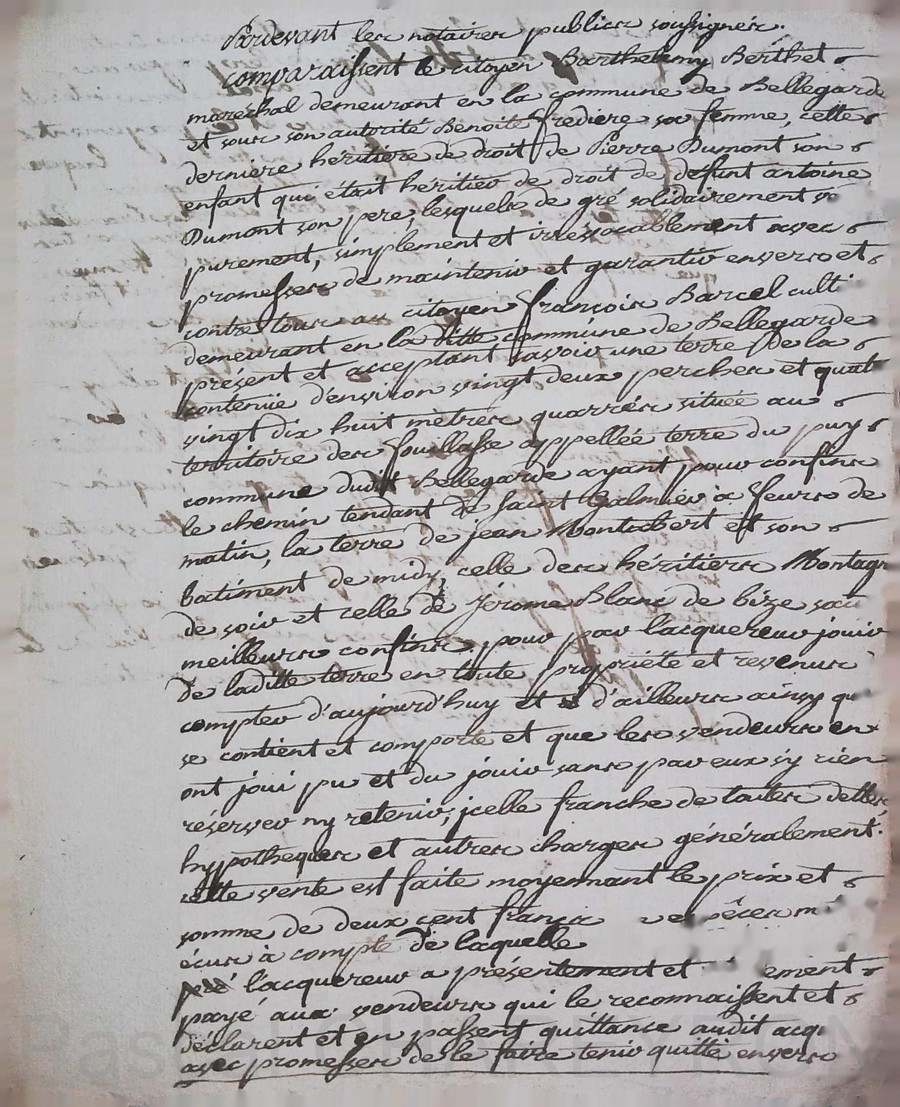 Pardevant les notaires publics soussignés.
comparaissent le citoyen Barthelemy Berthet
maréchal demeurant en la commune de Bellegarde
et sous son autorité Benoite Fredière sa femme, cette
derniere héritière de droit de Pierre Dumont son
enfant qui était héritier de droit de defunt antoine
Dumont son pere, lesquels de gré solidairement
purement, simplement et irrévocablement avec
promesses de maintenir et garantir envers et
contre tous au citoyen françois Barcel culti
demeurant en la ditte commune de Bellegarde
présent et acceptant savoir une terre de la
contenüe d'environ vingt deux perches et quat
vingt dix huit mètres quarrés située au
territoire des fouillasse appellée terre du puy
commune dudit Bellegarde ayant pour confins
le chemin tendant de saint Galmier à feurs de
matin, la terre de jean Montabert et son
batiment de midy, celle des héritiers Montagn
de soir et celle de Jerome Blanc de bize sau
meilleurs confins, pour par l'acquereur jouir
de laditte terre en toute propriété et revenus
compter d'aujourd'huy et d'ailleurs ainsy qu
se contient et comporte et que les vendeurs en
ont joui pu et du jouir sans par eux s'y rien
réserver ny retenir, jcelle franche de toutes dettes
hypotheques et autres charges généralement.
cette vente est faite moyennant le prix et
somme de deux cent francs espèces
écus à compte de laquelle
l'acquereur a présentement et ement
payé aux vendeurs qui le reconnaissent et
déclarent et en passent quittance audit acq
avec promesses de le faire tenir quitte envers